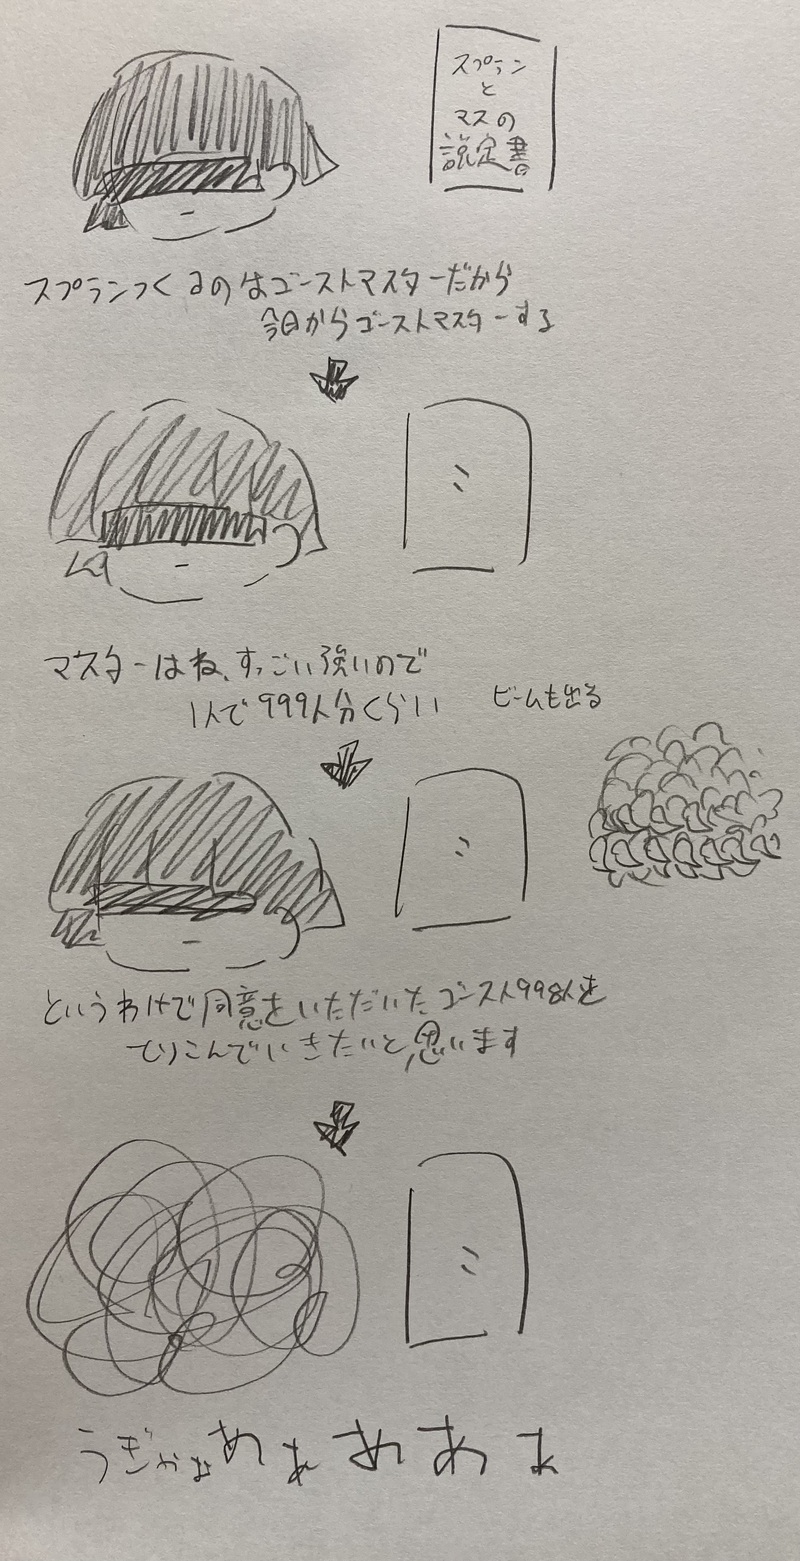 スプラン
と
マスの
設定書
スプランつくるのはゴーストマスターだから
今日からゴーストマスターする
マスターはね、すっごい強いので
1人で999人分くらい
ビームも出る
というわけで同意をいただいたゴースト998人を
とりこんでいきたいと思います
うぎゃぁあぁああぁ